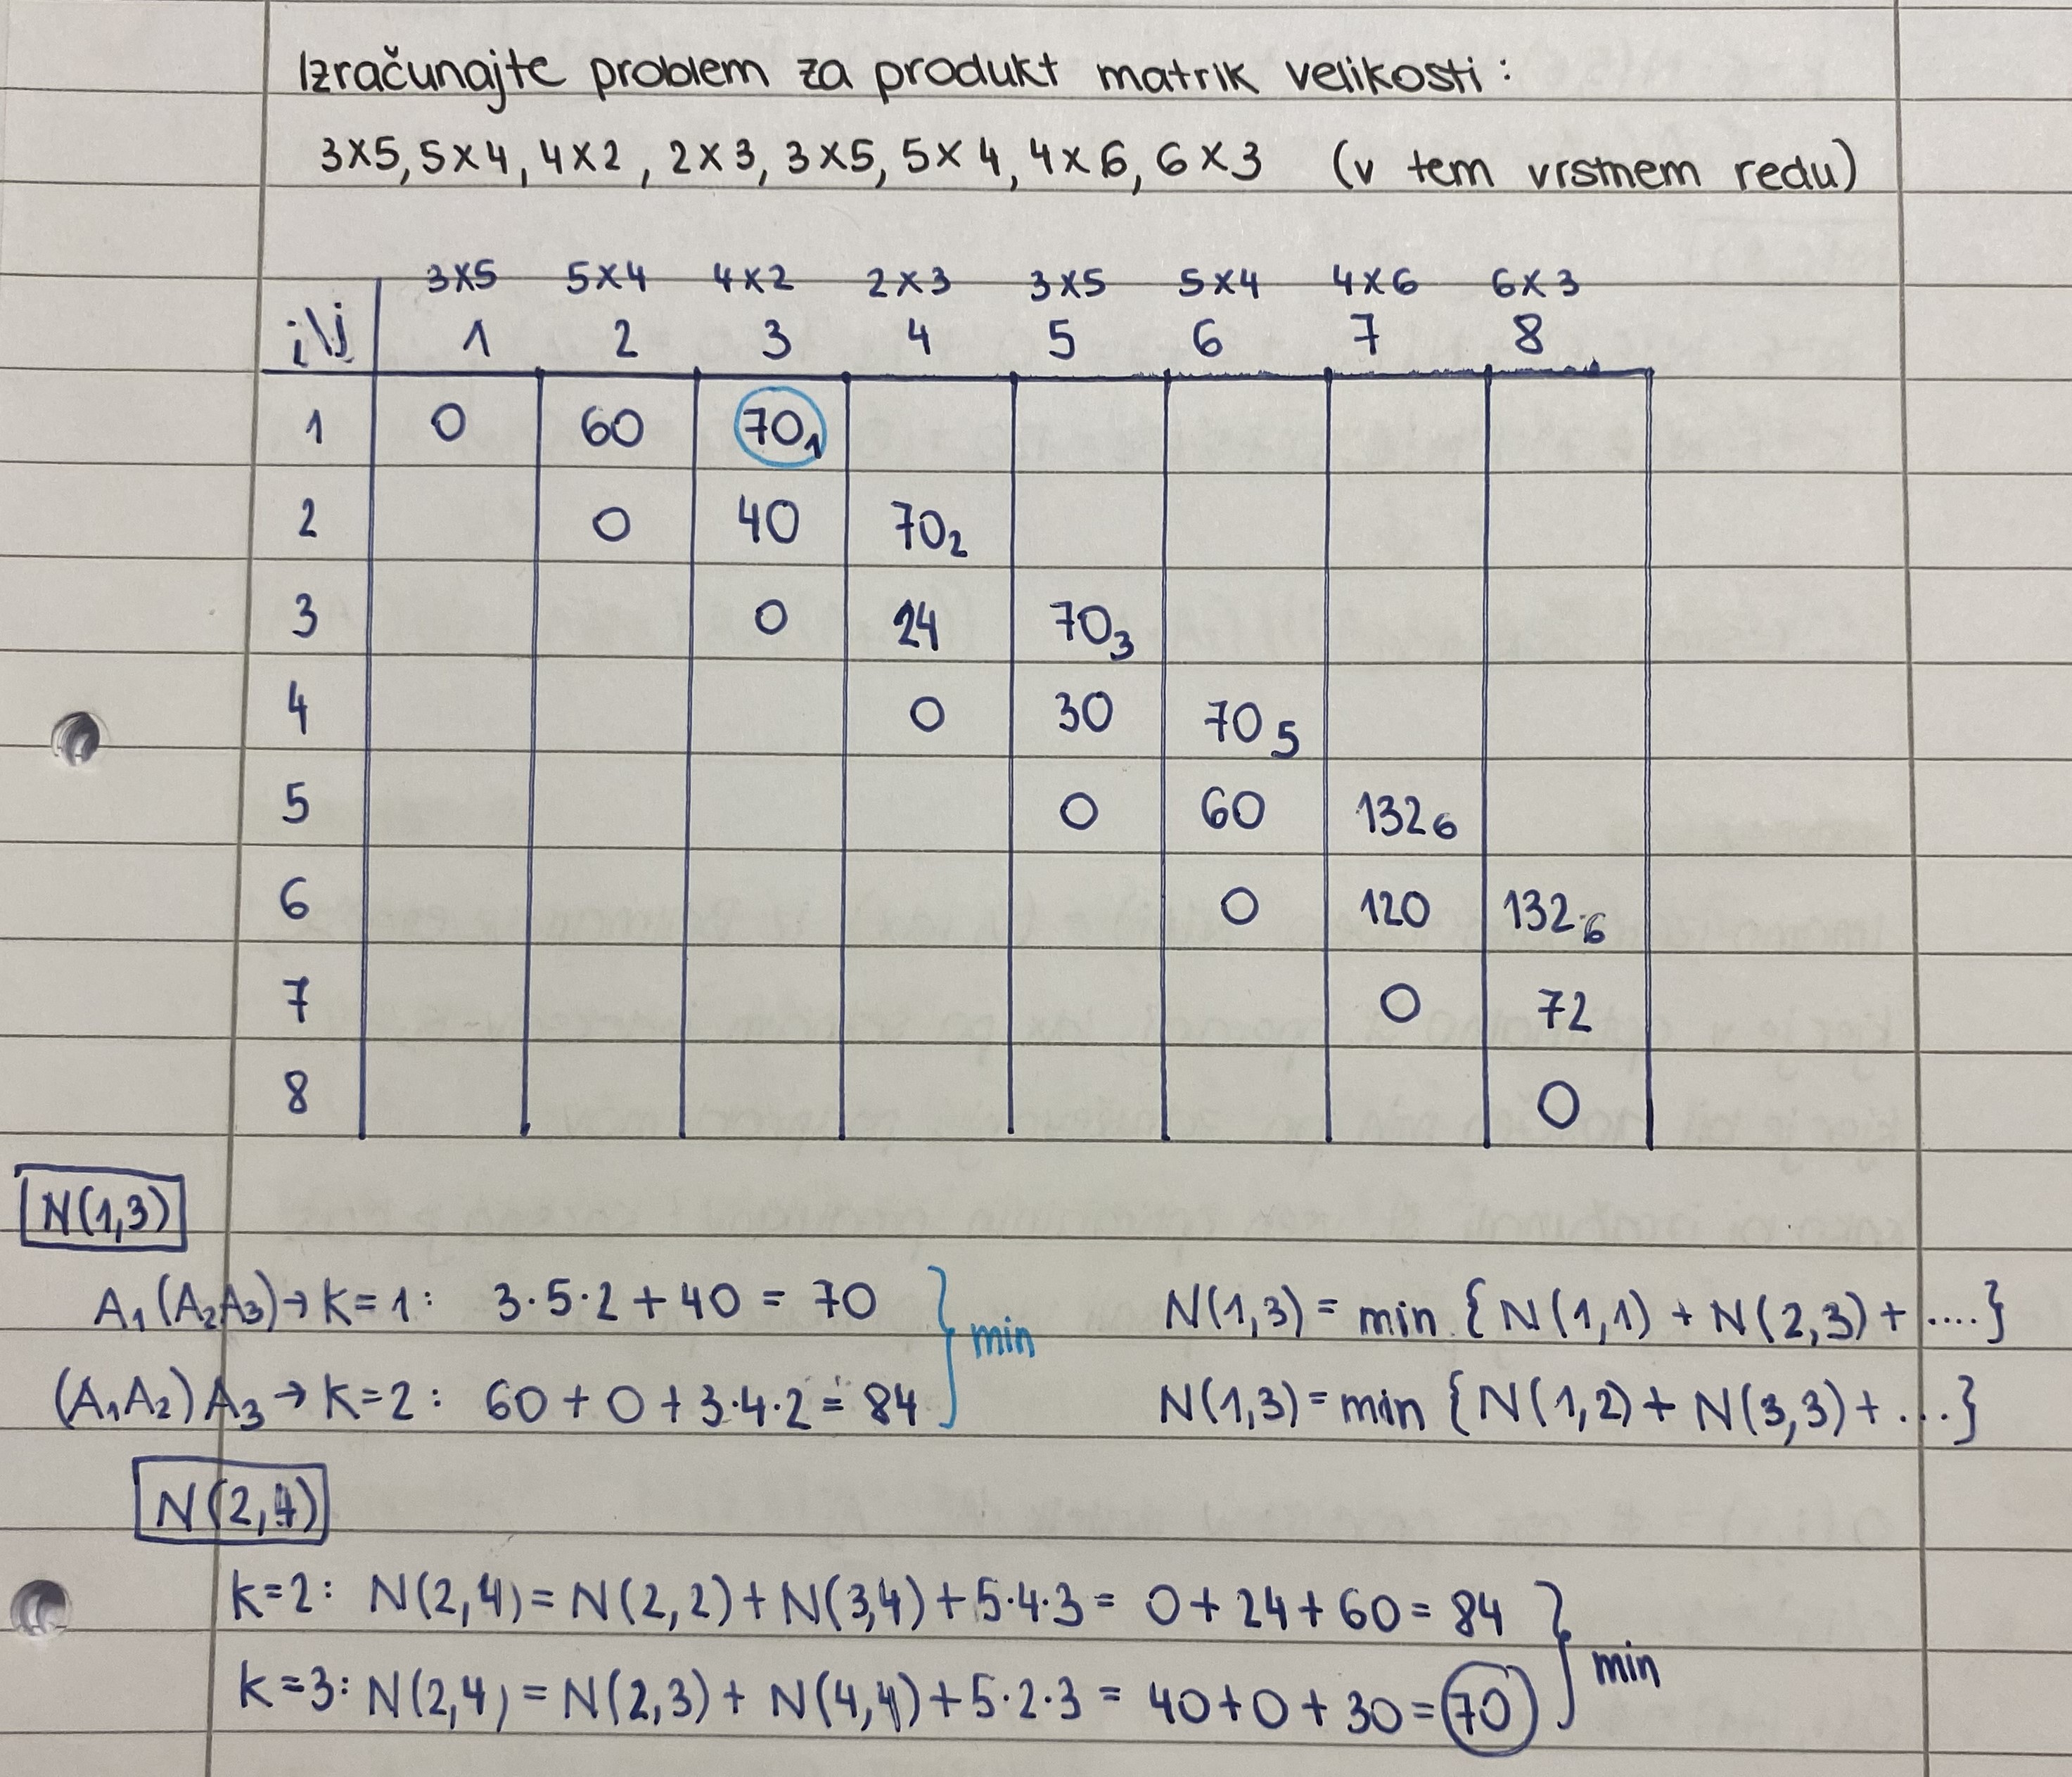 Izračunajte problem za produkt matrik velikosti:
3x5, 5x4, 4x2, 2x3, 3x5, 5x4, 4x6, 6x3 (v tem vrstnem redu)
3x5 5x4 4x2 2x3 3x5 5x4 4x6 6x3
i\j 1 2 3 4 5 6 7 8
1 0 60 70₁
2 0 40 70₂
3 0 24 70₃
4 0 30 70₅
5 0 60 132₆
6 0 120 132₆
7 0 72
8 0
N(1,3)
A₁(A₂A₃) → k=1: 3·5·2 + 40 = 70 } min N(1,3) = min {N(1,1) + N(2,3) + ....}
(A₁A₂)A₃ → k=2: 60 + 0 + 3·4·2 = 84 N(1,3) = min {N(1,2) + N(3,3) + ...}
N(2,4)
k=2: N(2,4) = N(2,2) + N(3,4) + 5·4·3 = 0 + 24 + 60 = 84 } min
k=3: N(2,4) = N(2,3) + N(4,4) + 5·2·3 = 40 + 0 + 30 = 70